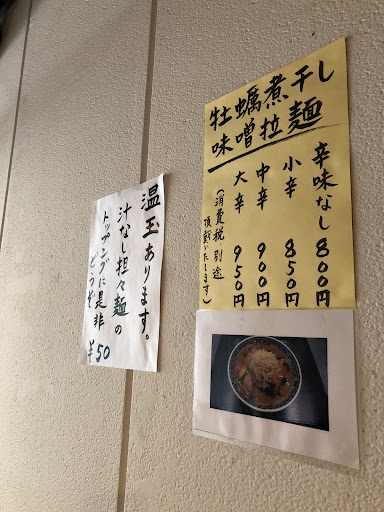 牡蠣煮干し
味噌拉麺
辛味なし 800円
小辛 850円
中辛 900円
大辛 950円
(消費税、別途
頂戴いたします)
温玉あります。
汁なし担々麺の
トッピングに是非
どうぞ ¥50